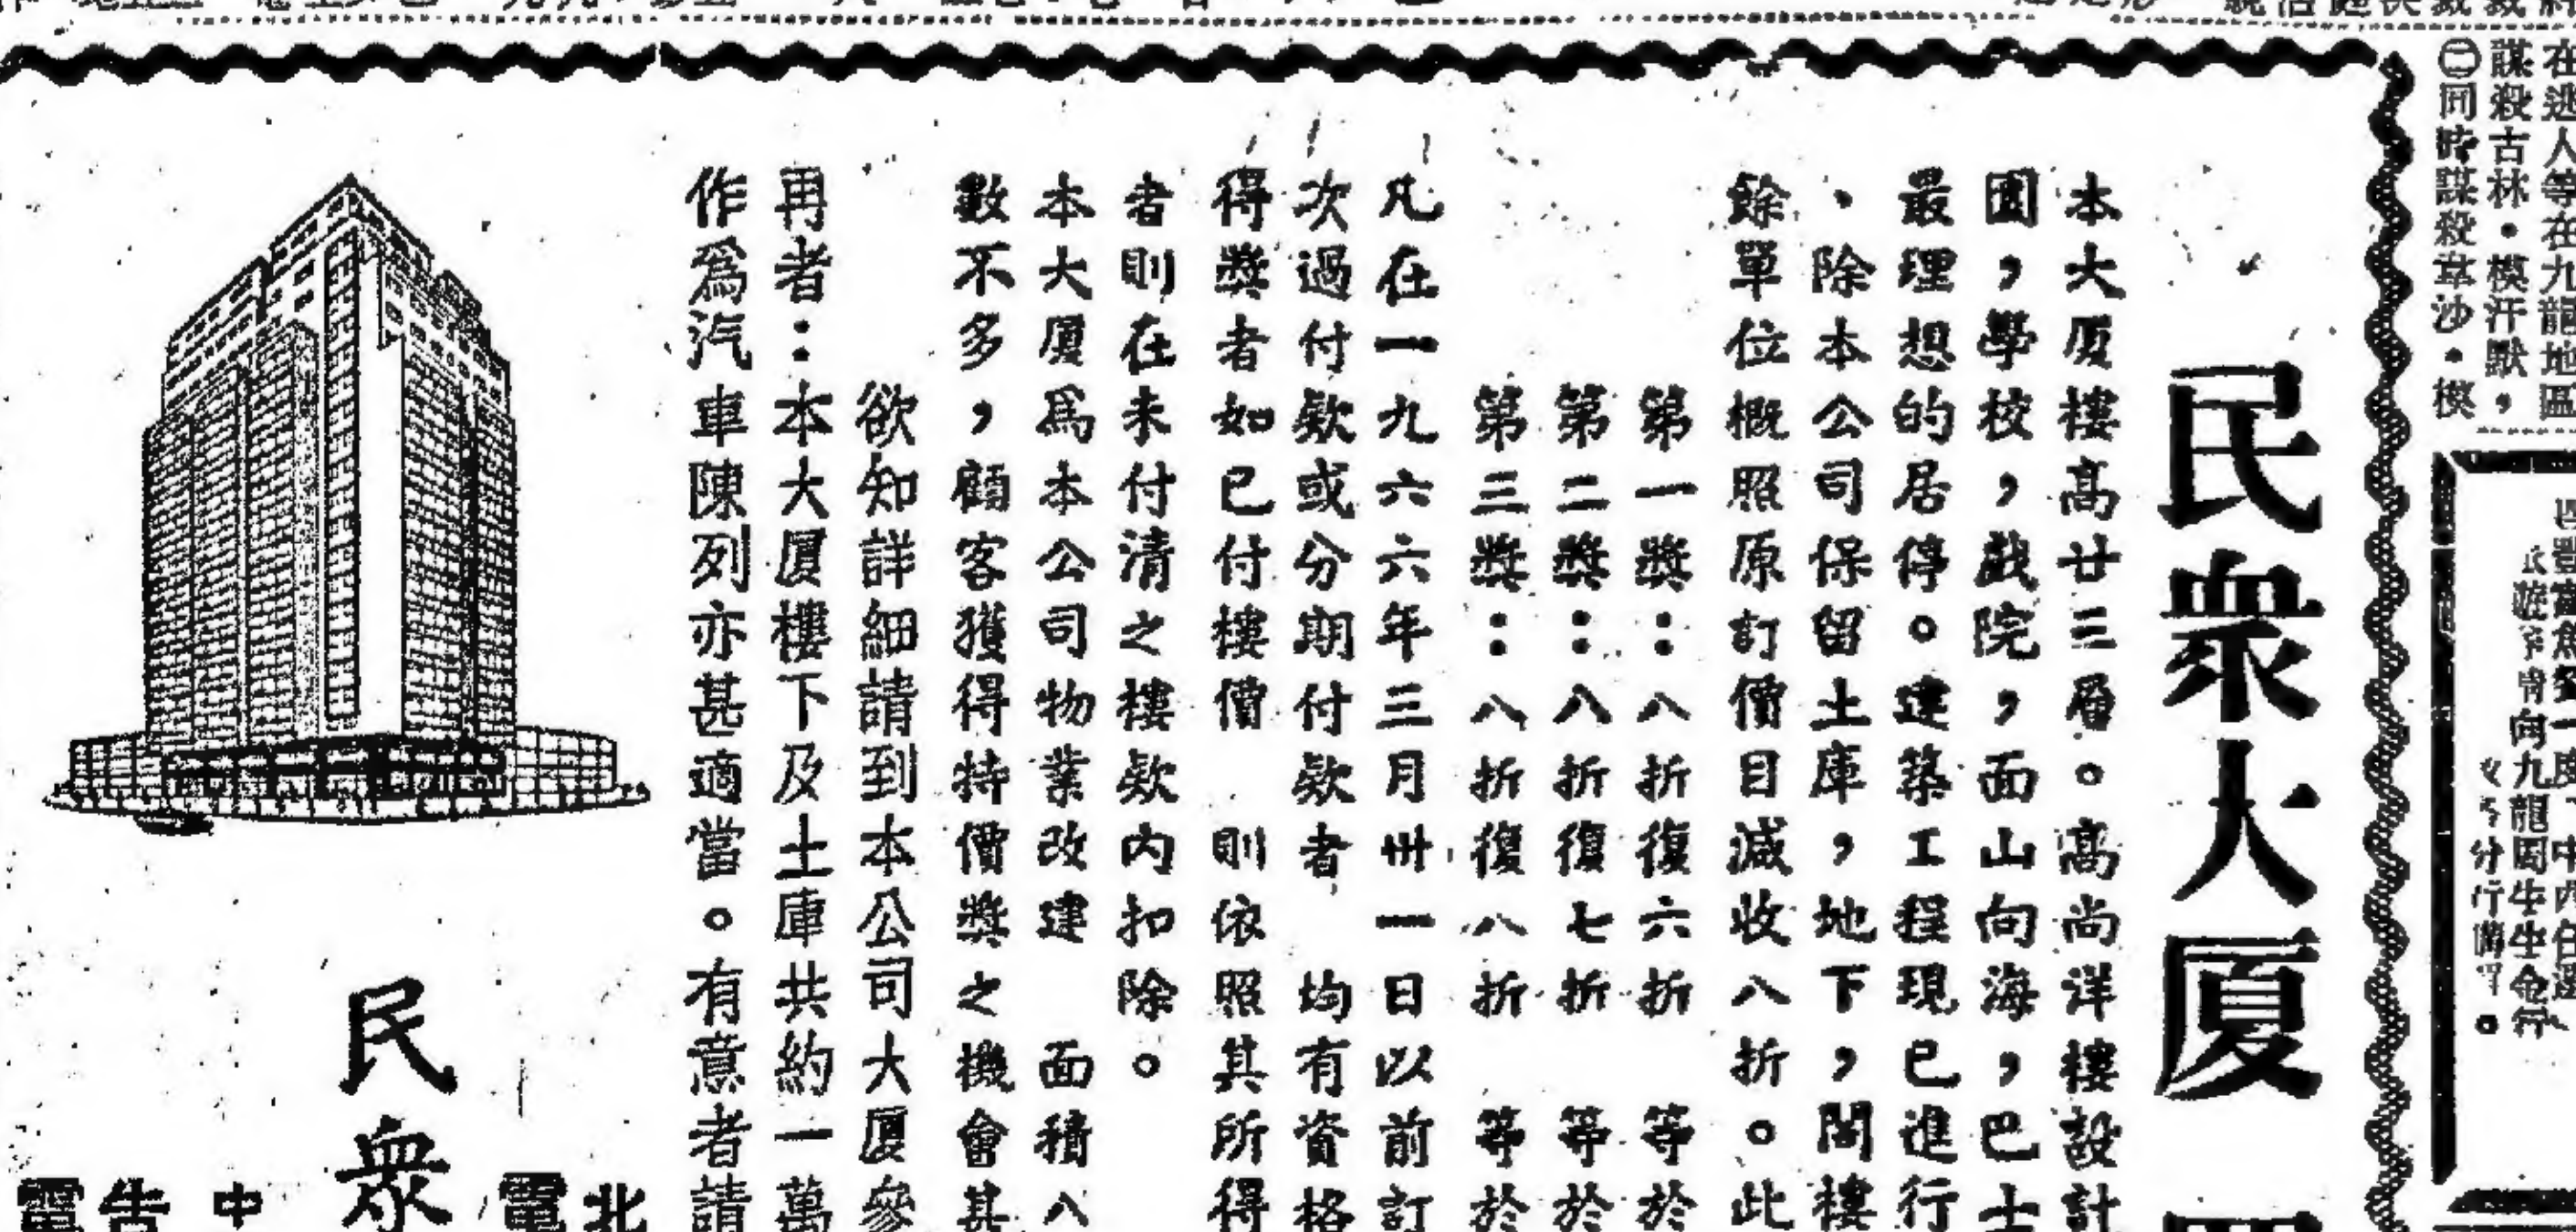 民衆大厦
本大厦樓高廿三層。高尚洋樓設計
園，學校，戲院，面山向海，巴士
最理想的居停。建築工程現已進行
、除本公司保留土庫，地下，閣樓
餘單位概照原訂價目減收八折。此
第一獎：八折復六折　等於
第二獎：八折復七折　等於
第三獎：八折復八折　等於
凡在一九六六年三月卅一日以前訂
次過付欵或分期付欵者　均有資格
得獎者如已付樓價　則依照其所得
者則在未付清之樓欵內扣除。
本大厦爲本公司物業改建　面積八
數不多，顧客獲得特價獎之機會甚
欲知詳細請到本公司大厦參
再者：本大厦樓下及土庫共約一萬
作爲汽車陳列亦甚適當。有意者請
民衆
北
電
中
告
電
在逃人等在九龍地區
謀殺古林・模汗默，
㊁同時謀殺韋沙・模